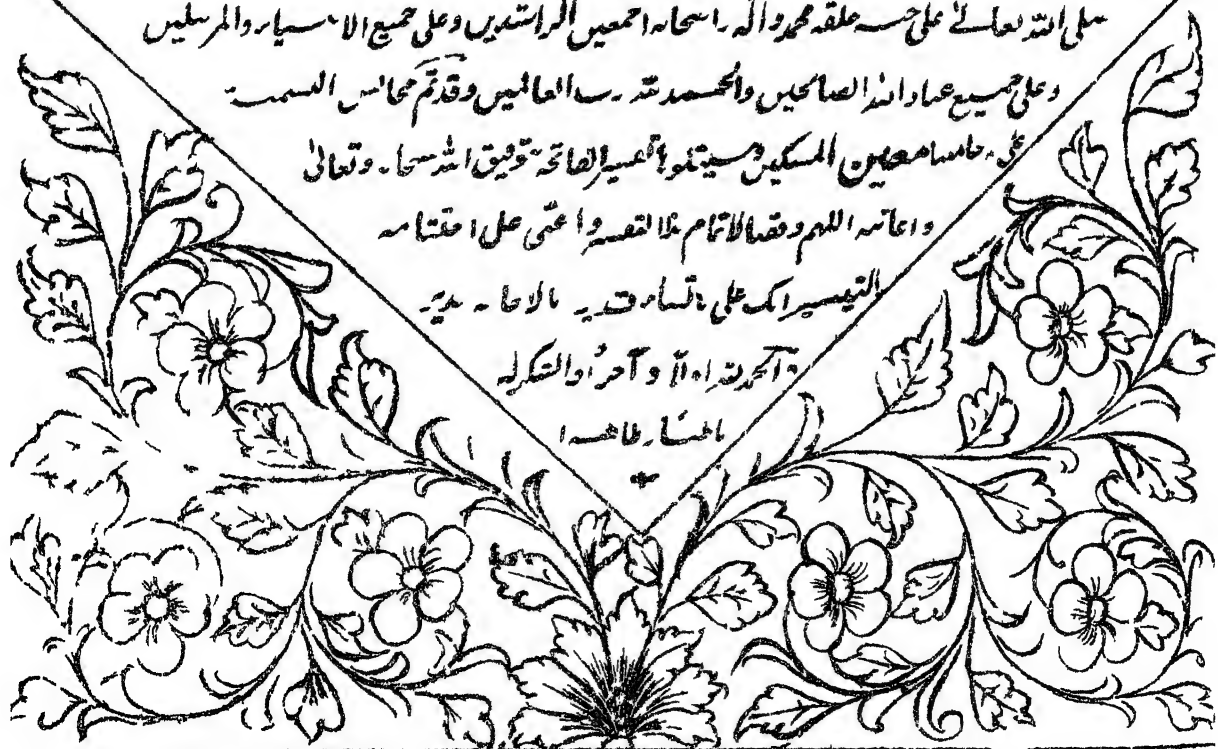 صلى الله تعالى على خير خلقه محمد وآله واصحابه اجمعين الراشدين وعلى جميع الانبياء والمرسلين
وعلى جميع عباد الله الصالحين والحمد لله رب العالمين وقد تم مجالس التسمية
على المسكين وسيتلوها تفسير الفاتحة بتوفيق الله سبحانه وتعالى
واعانته اللهم وفقنا لاتمام هذا القصد واعنى على اختتامه
التيسير انك على ما تشاء قدير بالاجابة جدير
والحمد لله اولا وآخرا والشكر له
باطنا وظاهرا